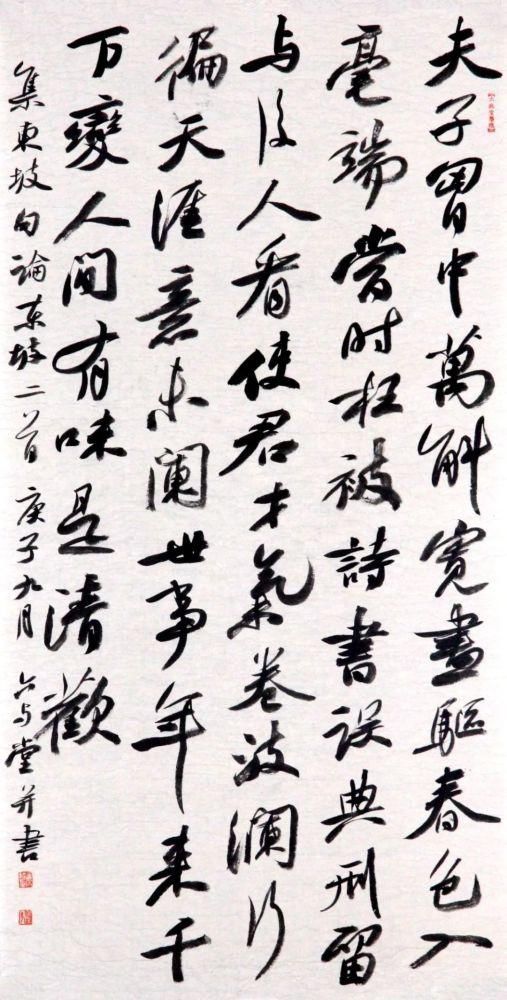 夫子胷中萬斛寬盡驅春色入
毫端當时枉被詩書误典刑留
与後人看使君才氣卷波瀾行
徧天涯意未闌世事年来千
万變人间有味是清歡
集東坡句論东坡二首 庚子九月 六与堂并書